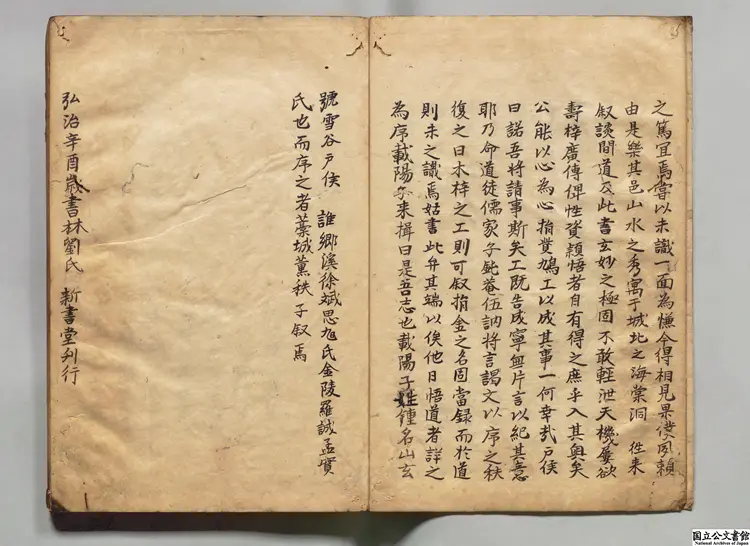 之篤宜焉嘗以未識一面為慊今得相見果愜夙賴
由是樂其邑山水之秀寓于城北之海棠洞 徃来
叙談間道及此書玄妙之極固不敢輕泄天機屢欲
壽梓廣傳俾性資穎悟者自有得之庶乎入其奥矣
公能以心為心捐貲鳩工以成其事一何幸哉戸侯
曰諾吾將請事斯矣工既告成寧無片言以紀其意
耶乃命道徒儒家子鈍菴伍訥將言謁文以序之秩
復之曰木梓之工則可叙捐金之名固當録而於道
則未之識焉姑書此弁其端以俟他日悟道者詳之
為序載陽子来揖曰是吾志也載陽子姓鍾名山玄
號雪谷戸侯 誰鄉溪徐斌思旭氏金陵羅誠孟實
氏也而序之者藁城董秩子叙焉
弘治辛酉歳書林劉氏 新書堂刋行
国立公文書館
National Archives of Japan